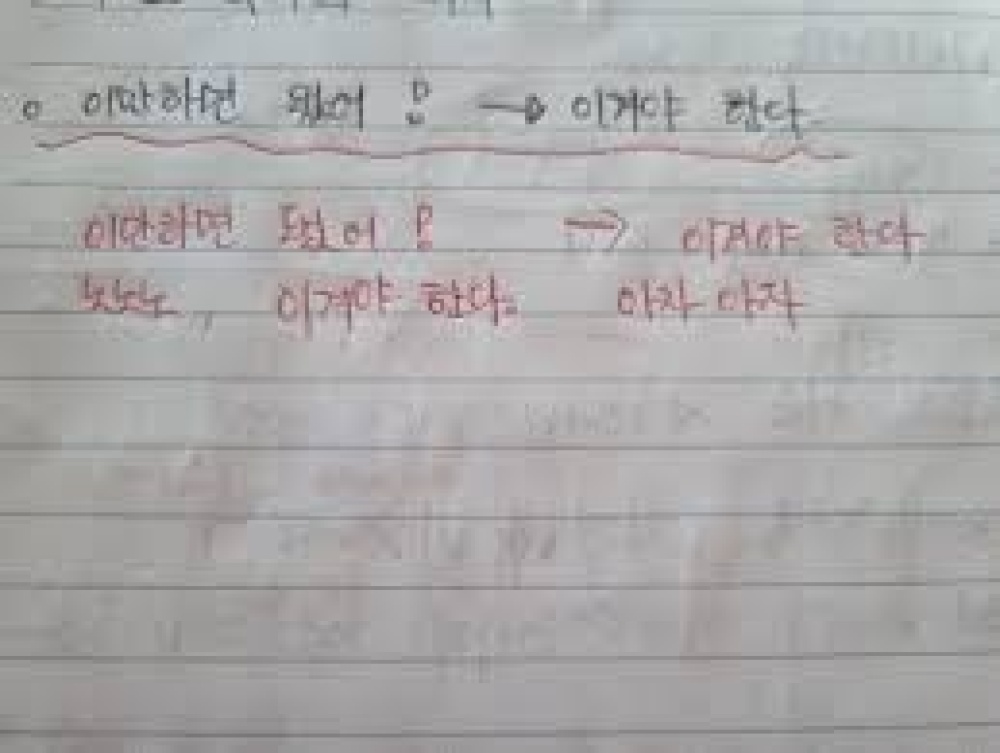 o 이만하면 됐어 ! → 이겨야 한다
이만하면 됐어 ! → 이겨야 한다
이겨야 한다. 아자 아자